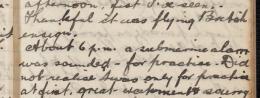 afternoon, first I'd seen.
Thankful it was flying British
ensign.
About 6 p.m. a submarine alarm
was sounded - for practice. Did
not realise it was only for practice
at first, great excitement &